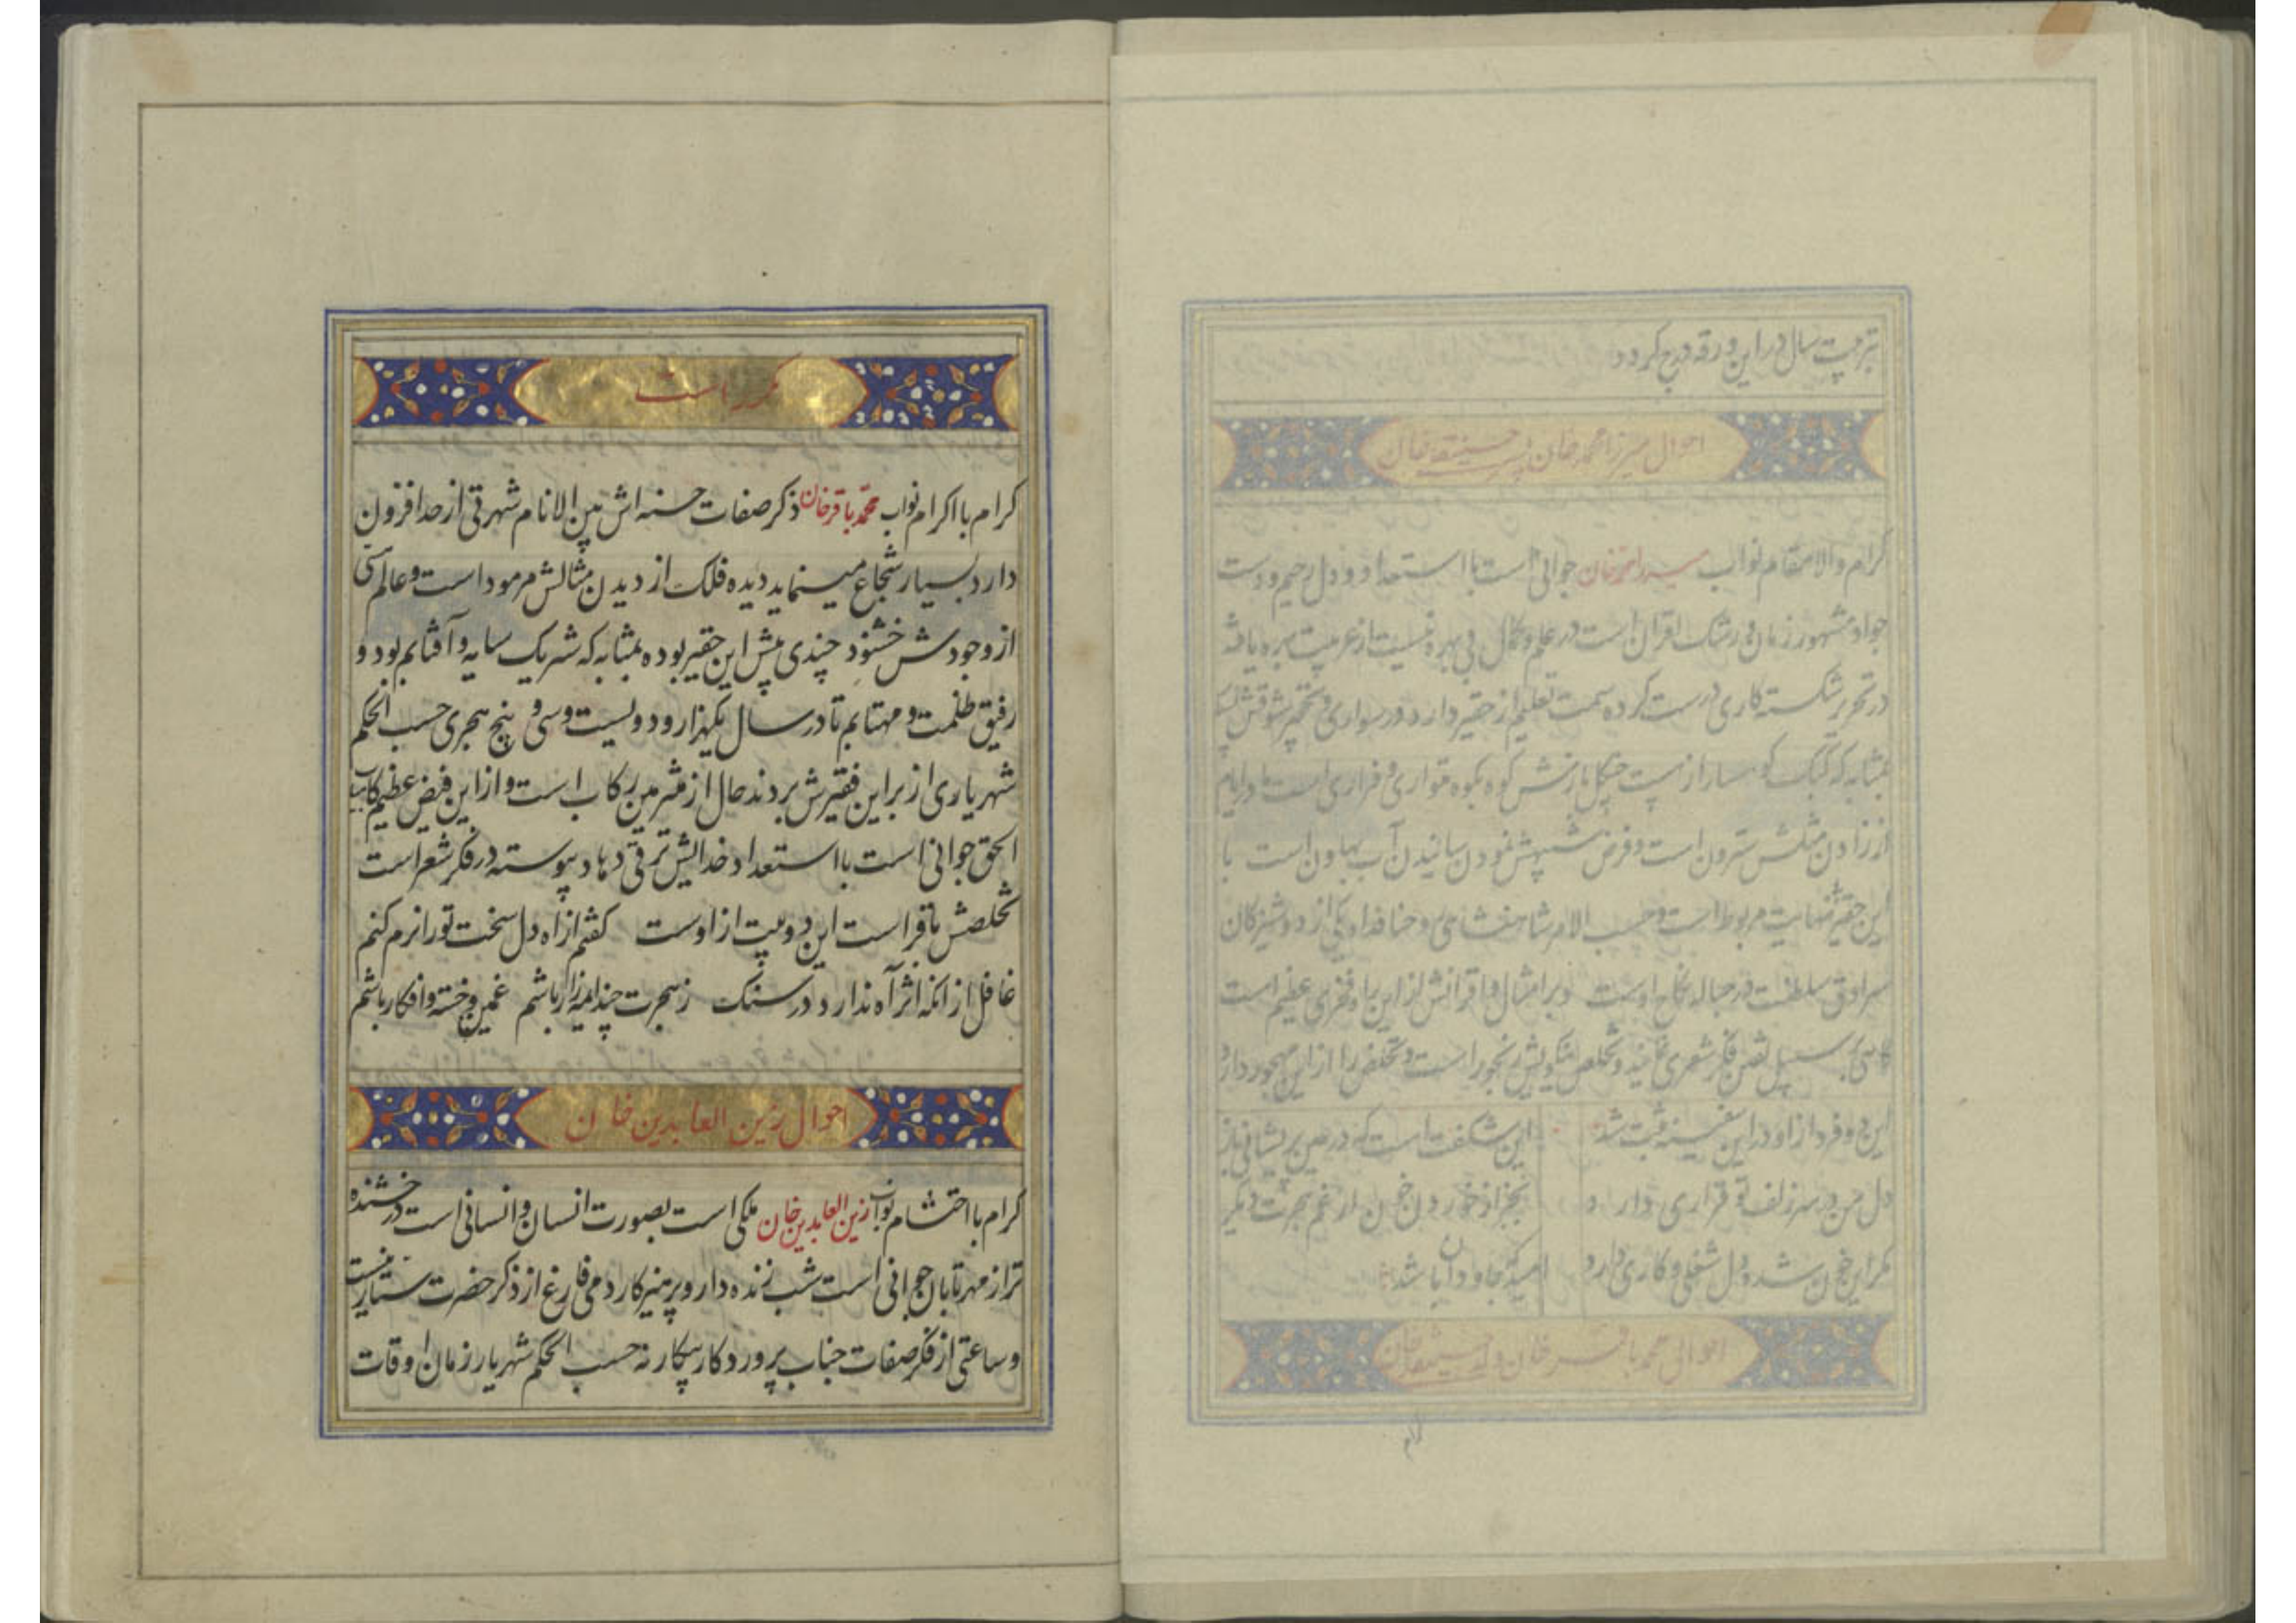 بترتیب سال در این ورقه درج گردد
احوال میرزا محمد خان
گرام والامقام نواب سید احمد خان جوانی است با استعداد و دل رحیم و دست
جواد مشهور زمان و رشک اقران است در علم و کمال بی بهره نیست از عربیت بهره یافته
در تحریر شکسته کاری درست کرده سمت تعلیم از حقیر دارد در سواری و
بمثابه که کبک کوهسار از چنگل بازش کوه بکوه متواری و فراری است
از زادن مثلش سترون است و آب بهاون است با
این حقیر نهایت مربوط است و حسب الامر شاهنشاهی روحنا فداه یکی از دوشیزگان
سرادق سلطنت در حباله نکاح اوست و بر امثال و اقرانش از این فخری عظیم است
گاهی بر سبیل تفنن فکر شعری نماید و تخلص نیکویش رنجور است و تخلص را از این مهجور دارد
این دو فرد از او در این سفینه ثبت شد این شگفت است که در عین پریشانی باز
دل من در سر زلف تو قراری دارد بجز از خوردن خون از غم هجرت دیگر
مگر این خون شده دل شغلی و کاری دارد امید که جاودان باشد
احوال محمد باقر خان ولد
گرام
مکرر است
گرام با اکرام نواب محمد باقر خان ذکر صفات حسنه اش بین الانام شهرتی از حد افزون
دارد بسیار شجاع مینماید دیده فلک از دیدن مثالش مرمود است و عالمی
از وجودش خشنود چندی پیش این حقیر بوده بمثابه که شریک سایه و آفتابم بود و
رفیق ظلمت و مهتابم تا در سال یکهزار و دویست و سی و پنج هجری حسب الحکم
شهریاری از بر این فقیرش بردند حال از ملتزمین رکاب است و از این فیض عظیم کامیاب
الحق جوانی است با استعداد خدایش ترقی دهاد پیوسته در فکر شعر است
تخلصش باقر است این دو بیت از اوست گفتم از آه دل سخت تو را نرم کنم
غافل از آنکه اثر آه ندارد در سنگ ز هجرت چند ای مه زار باشم غمین و خسته و افکار باشم
احوال زین العابدین خان
گرام با احتشام نواب زین العابدین خان ملکی است بصورت انسان و انسانی است درخشنده
تر از مهر تابان جوانی است شب زنده دار و پرهیزکار دمی فارغ از ذکر حضرت ستار نیست
و ساعتی از فکر صفات جناب پروردگار بیکار نه حسب الحکم شهریار زمان اوقات